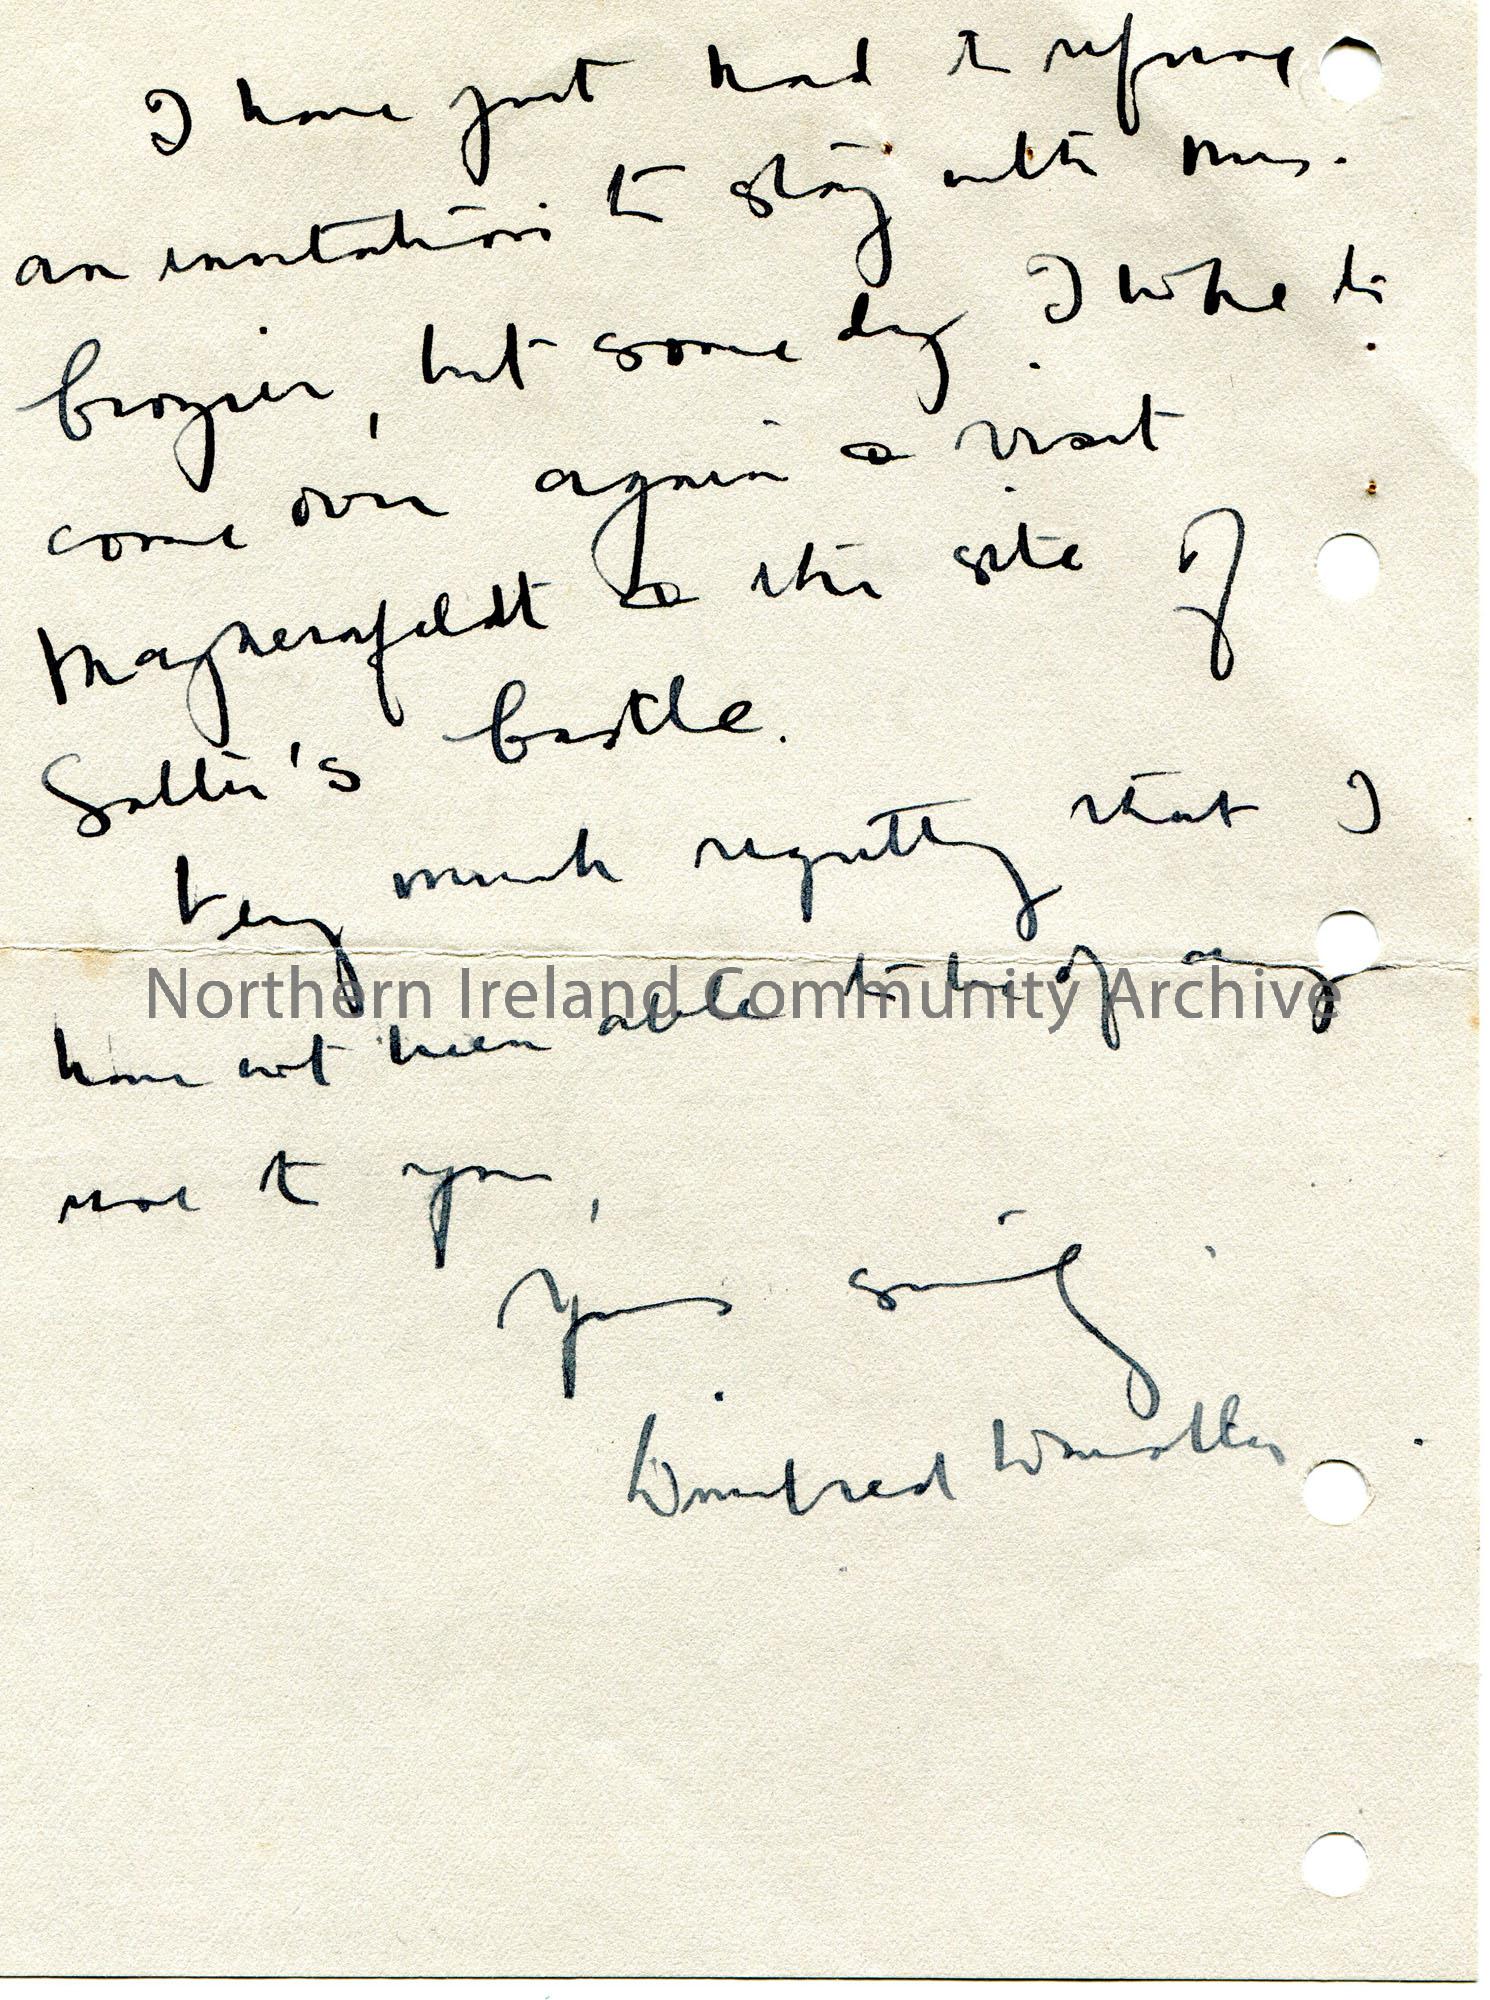 I have just had to refuse
an invitation to stay with Mrs.
Crozier, but some day I hope to
come over again & visit
Magherafeldt & the site of
Salter's Castle.
Very much regretting that I
have not been able to be of any
use to you,
Yours sincerely
Winifred
Northern Ireland Community Archive